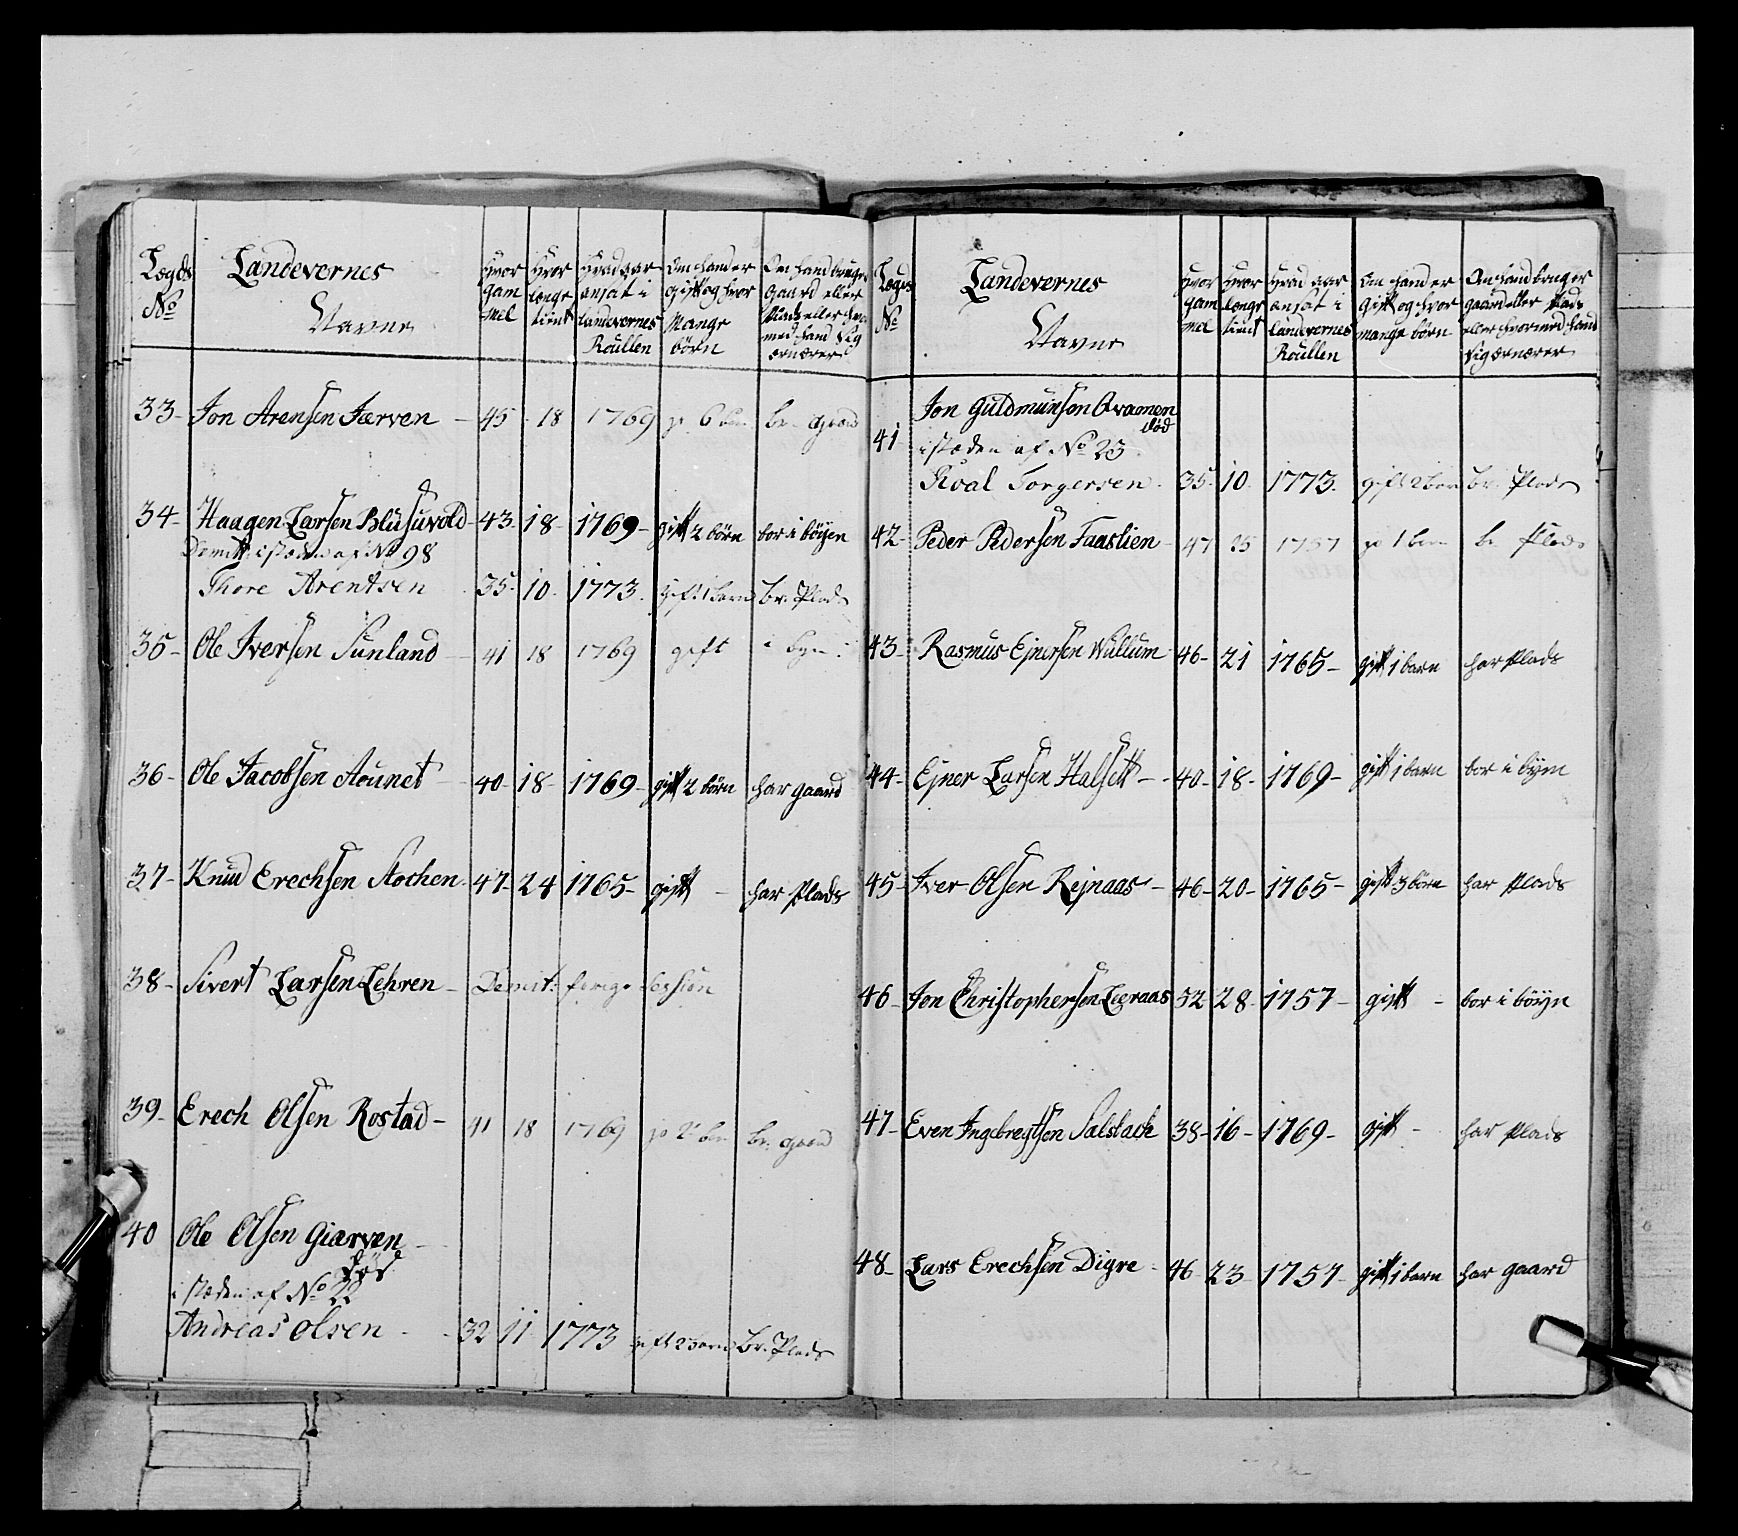 Lægds No
Landevernes Navne
Hvor gam mel
Hvor lenge tient
Hvad aar ansat i Landevernes Roullen
Om hand er Gift og hvor Mange börn
Om hand bruger Gaard eller Plads eller hvor med hand Sig ernærer
33- Jon Arensen Jærven - 45 - 18 1769 do 6 börn br. Gaard
34- Haagen Larsen Blusuvold - 43- 18- 1769- gift 2 börn bor i böyen
Demitt: istæden af No 98
Thore Arentsen 35- 10. 1773. gift 1 barn br. Plads
35- Ole Iversen Sunland 41 18 1769 gift i byen
36- Ole Jacobsen Aounet 40- 18- 1769- gift 2 börn har gaard
37- Knud Erechsen Stochen 47- 24 1765- gift - har Plads
38- Sivert Larsen Lehren - Demit: forrige Session
39- Erech Olsen Rostad - 41 18 1769 do 2 börn br. gaard
40 Ole Olsen Giærven -
död
i stæden af No 22
Andreas Olsen - - 32 11 1773 gift 2 barn br. Plads
Lægds No
Landevernes Navne
Hvor gam mel
Hvor lenge tient
Hvad aar ansat i Landevernes Roullen
Om hand er Gift og hvor mange börn
Om hand bruger gaard eller Plads eller hvormed hand Sig ernærer
41 Jon Guldmunsen Qvamen
död
i stæden af No 23
Sival Torgersen. 35- 10. 1773. gift 2 barn br. Plads
42- Peder Pedersen Faaslien - 47 25 1757 do 1 barn br Plads
43- Rasmus Ejnersen Wullum 46- 21 1765- gift 1 barn har Plads
44- Ejner Larsen Halsett - - 40- 18- 1769- gift 1 barn bor i byen
45- Iver Olsen Rejnaas - 46- 20- 1765- gift 3 börn har Plads
46- Jon Christophersen Læraas 52 28- 1757- gift - bor i böyn
47- Even Ingebregtsen Salstach 38- 16- 1769- gift - har Plads
48- Lars Erechsen Digre - 46- 23- 1757- gift 1 barn har gaard